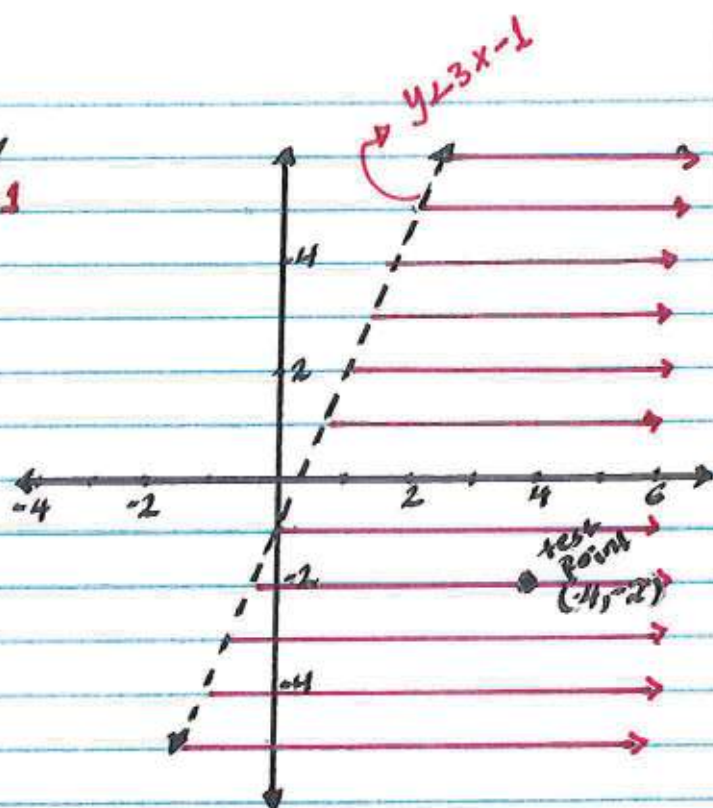 y<3x-1
1
4
2
-4 -2 2 4 6
test
point
(4,-2)
-2
-4